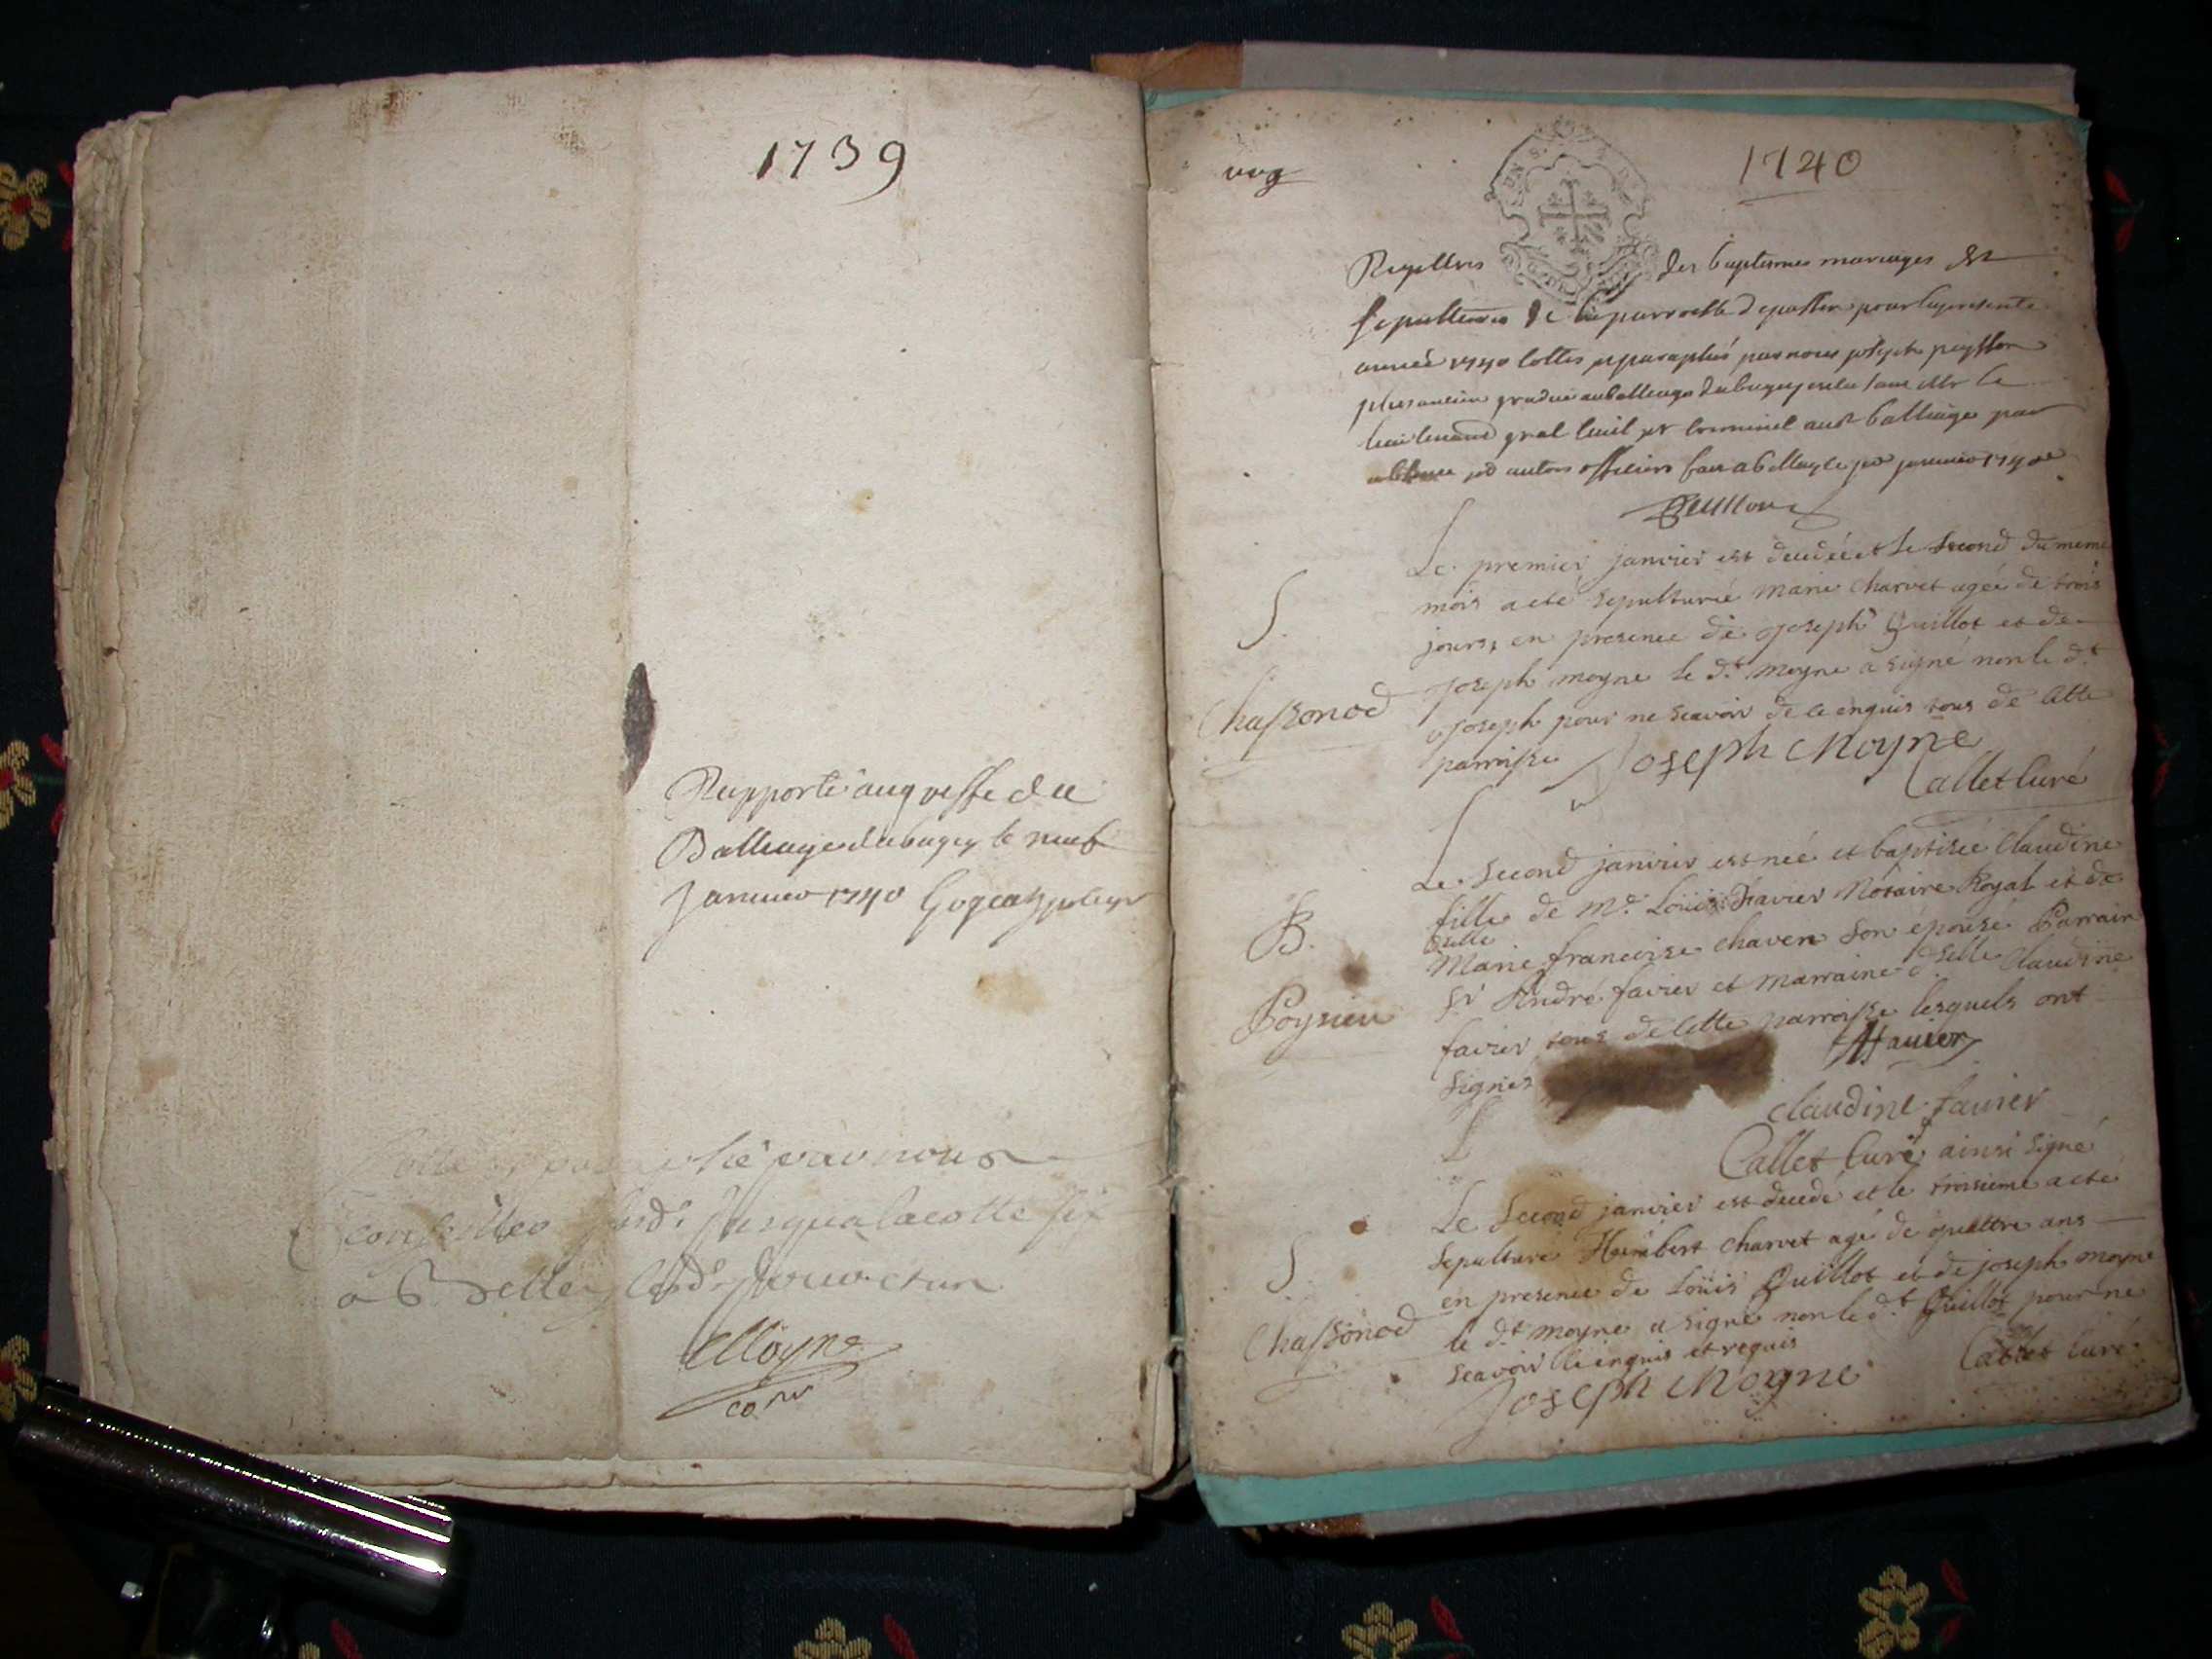 1739
Rapporté au greffe du
Balliage du bugey le neuf
Janvier 1740
par nous
jusqua la cotte six
a Belley
Moyne
1740
Registres des baptemes mariages et
sepultures de la parroesse de pour la presente
année 1740 cottes et paraphés par nous joseph peysson
plus ancien gradué au balleage du bugey
lieutenant gnal civil et criminel audt balliage par
absence des autres officiers fait a belley le per janvier 1740
Peysson
Le premier janvier est decedée et le second du meme
mois a eté sepulturée marie charvet agée de trois
S.
jours, en presence de joseph Guillot et de
joseph moyne le dt moyne a signé non le dt
Chassonod
joseph pour ne scavoir de ce enquis tous de cette
parroisse Joseph Moyne
Callet Curé
Le second janvier est née et baptisée Claudine
fille de Me Louis favier Notaire Royal et de
B.
delle
Marie francoise chaven son épouse Parrain
sr André favier et marraine dselle Claudine
Poysieu
favier tous de cette parroisse lesquels ont
signés
Favier
Claudine favier
Callet Curé ainsi signé
Le Second janvier est decedé et le troisieme a eté
sepulturé Humbert charvet agé de quattre ans
S
en presence de Louis Guillot et de joseph moyne
Chassonod
le dt moyne a signé non le dt Guillot pour ne
scavoir de enquis et requis
Joseph Moyne
Callet Curé